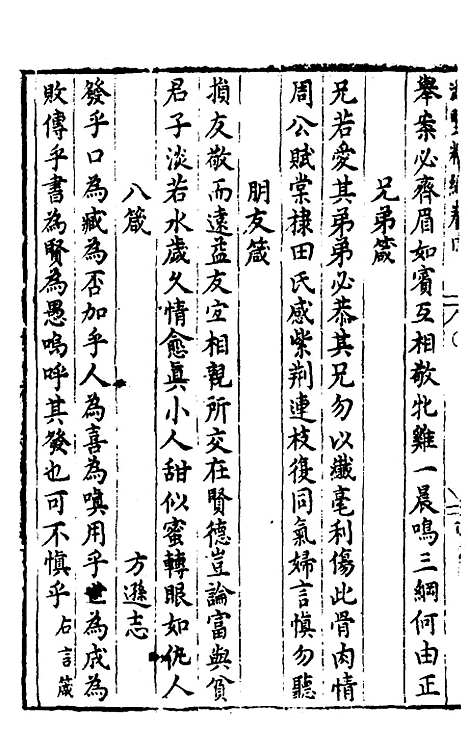 舉案必齊眉如賓互相敬牝雞一晨鳴三綱何由正
兄弟箴
兄若愛其弟弟必恭其兄勿以纖毫利傷此骨肉情
周公賦棠棣田氏感紫荆連枝復同氣婦言慎勿聽
朋友箴
損友敬而遠益友宜相親所交在賢德豈論富與貧
君子淡若水歲久情愈真小人甜似蜜轉眼如仇人
八箴 方遜志
發乎口為臧為否加乎人為喜為嗔用乎世為成為
敗傳乎書為賢為愚嗚呼其發也可不慎乎 右言箴